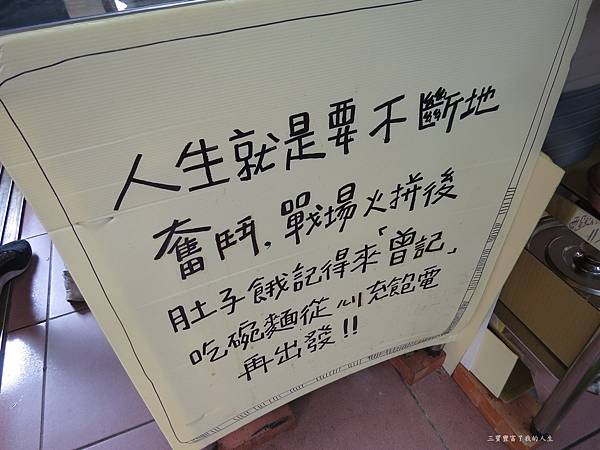 人生就是要不斷地
奮鬥,戰場火拼後
肚子餓記得來「曾記」
吃碗麵從心充飽電
再出發!!
三寶豐富了我的人生